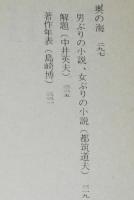 裏の海 三九七
男ぶりの小説、女ぶりの小説（都筑道夫） 四一九
解題（中井英夫） 四二五
著作年表（島崎博） 四三一